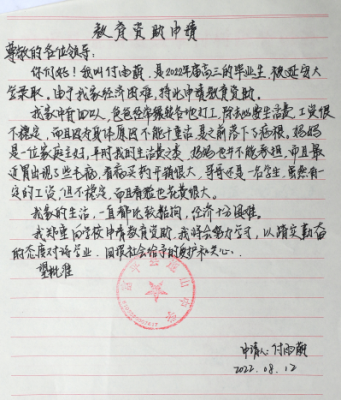 教育资助申请
尊敬的各位领导:
你们好!我叫付雨萌,是2022年届高三的毕业生,被延安大
学录取。由于我家经济困难,特此申请教育资助。
我家中有四口人,爸爸经常辗转各地打工,除去必要生活费,工资很
不稳定,而且因为身体原因不能干重活,是之前落下了病根。妈妈
是一位家庭主妇,平时我的生活费之类,妈妈也并不能承担,而且最
近胃出现了些毛病,看病买药开销很大。哥哥还是一名学生,虽然有一
定的工资,但不稳定,而且看脸也花费很大。
我家的生活,一直都比较拮据,经济十分困难。
我郑重向学校申请教育资助,我将会努力学习,以踏实勤奋
的态度对待学业,回报社会给予的爱护和关心。
望批准
中学
申请人:付雨萌
2022.08.12